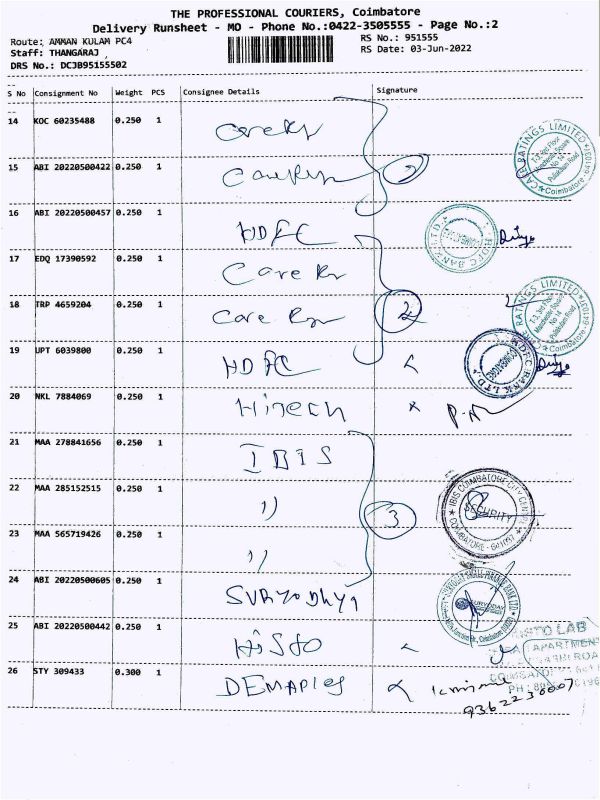 THE PROFESSIONAL COURIERS, Coimbatore
Delivery Runsheet - MO - Phone No.:0422-3505555 - Page No.:2
Route: AMMAN KULAM PC4
RS No.: 951555
Staff: THANGARAJ
RS Date: 03-Jun-2022
DRS No.: DCJB95155502
S No Consignment No Weight PCS Consignee Details Signature
14 KOC 60235488 0.250 1 Care Rn
15 ABI 20220500422 0.250 1 Care Rn
16 ABI 20220500457 0.250 1 HDFC
17 EDQ 17390592 0.250 1 Care Rn
18 TRP 4659204 0.250 1 Care Rn 2
19 UPT 6039800 0.250 1 HDFC
20 NKL 7884069 0.250 1 Hitech
21 MAA 278841656 0.250 1 IBIS
22 MAA 285152515 0.250 1 ,, 3
23 MAA 565719426 0.250 1 ,,
24 ABI 20220500605 0.250 1 SURYODHYA
25 ABI 20220500442 0.250 1 Histo
26 STY 309433 0.300 1 DEMAPLES
CARE RATINGS LIMITED
T-3, 3rd Floor
Manchester Square
Puliakulam Road
Coimbatore
HDFC BANK LTD.
RATINGS LIMITED
T-3, 3rd Floor
Manchester Square
Puliakulam Road
Coimbatore
HDFC BANK LTD.
IBIS COIMBATORE CITY CENTRE
SECURITY
COIMBATORE
SURYODAY
LAB